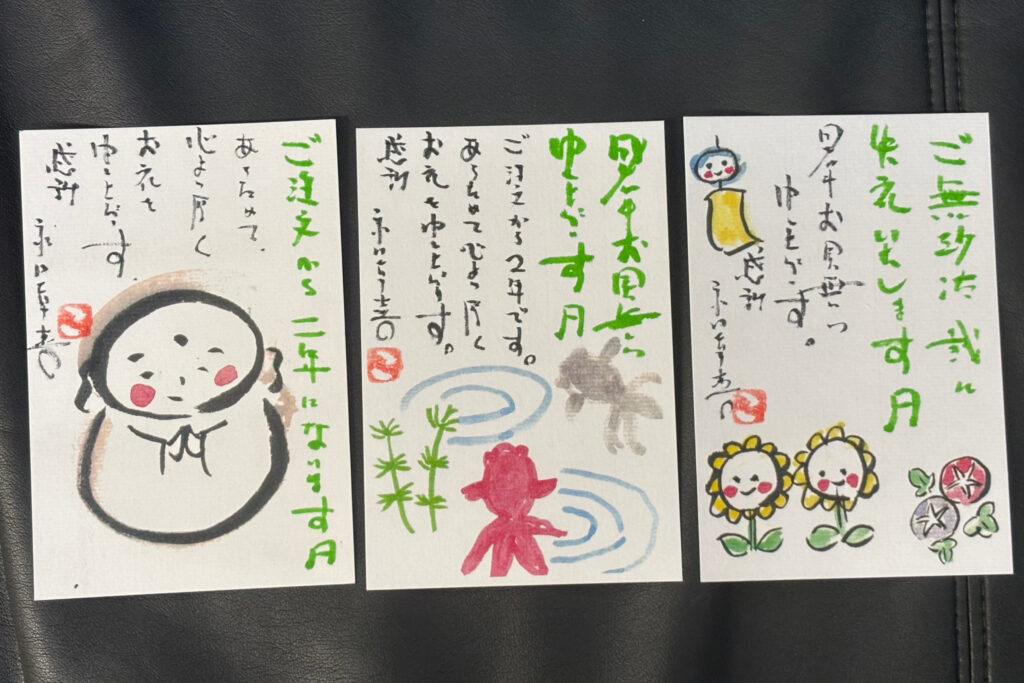 ご注文から二年になります月
あらためて、
心より厚く
お礼を
申し上げます
感謝
暑中お見舞い
申し上げます月
ご注文から2年です。
あらためて心より厚く
お礼を申し上げます。
感謝
ご無沙汰誠に
失礼いたします月
暑中お見舞い
申し上げます。
感謝